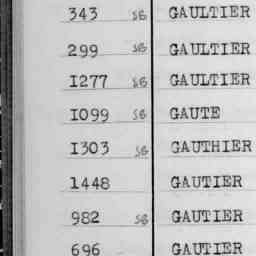 343 SG GAULTIER
299 SG GAULTIER
1277 SG GAULTIER
1099 SG GAUTE
1303 SG GAUTHIER
1448 GAUTIER
982 SG GAUTIER
696 GAUTIER